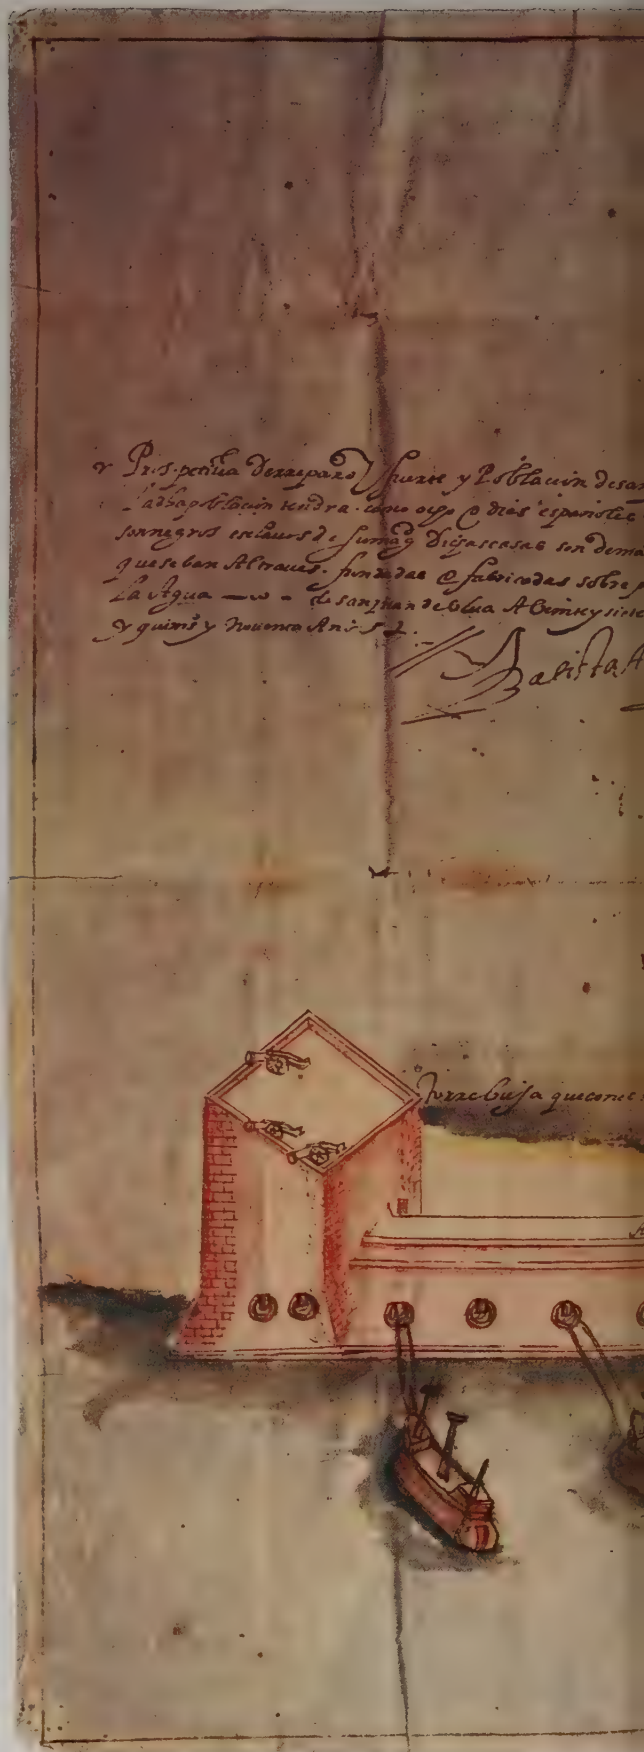 Prospectiua del rreparo y fuerte y Poblacion de san
La dha poblacion tendra como ocho o dies españoles
son negros esclauos de su magd y dichas casas son de ma
que se ban Al traues. fundadas @ fabricadas sobre
La Agua de san juan de Ulua A Veinte y siete
y quinos y Nouenta Años
Batista A
Torre bieja que